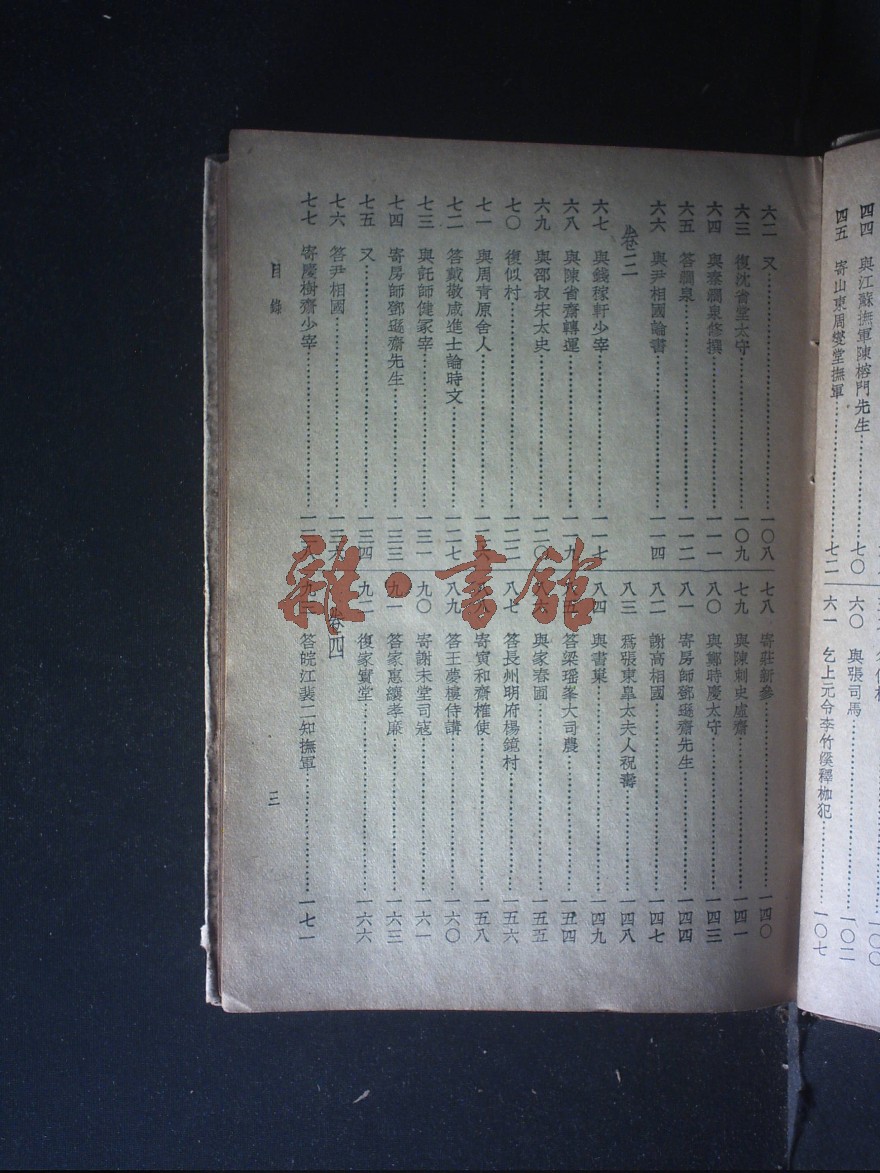 四四 與江蘇撫軍陳榕門先生……七〇
四五 寄山東周燮堂撫軍……七二
六〇 與張司馬……一〇二
六一 乞上元令李竹僕釋枷犯……一〇七
六二 又……一〇八
六三 復沈省堂太守……一〇九
六四 與秦澗泉修撰……一一一
六五 答澗泉……一一二
六六 與尹相國論書……一一四
卷三
六七 與錢稼軒少宰……一一七
六八 與陳省齋轉運……一一九
六九 與邵叔宋太史……一二〇
七〇 復似村……一二二
七一 與周青原舍人……一二
七二 答戴敬咸進士論時文……一二七
七三 與託師健冢宰……一三一
七四 寄房師鄧遜齋先生……一三三
七五 又……一三四
七六 答尹相國……一三六
七七 寄慶樹齋少宰……一三八
七八 寄莊新參……一四〇
七九 與陳刺史虛齋……一四一
八〇 與鄭時慶太守……一四三
八一 寄房師鄧遜齋先生……一四四
八二 謝高相國……一四七
八三 爲張東皐太夫人祝壽……一四八
八四 與書巢……一四九
八五 答梁瑤峯大司農……一五四
八六 與家春圃……一五五
八七 答長州明府楊鏡村……一五六
八八 寄寅和齋榷使……一五八
八九 答王夢樓侍講……一六〇
九〇 寄謝未堂司寇……一六一
九一 答家惠纕孝廉……一六三
九二 復家實堂……一六六
卷四
九三 答皖江裴二知撫軍……一七一
目錄
三
雜·書館